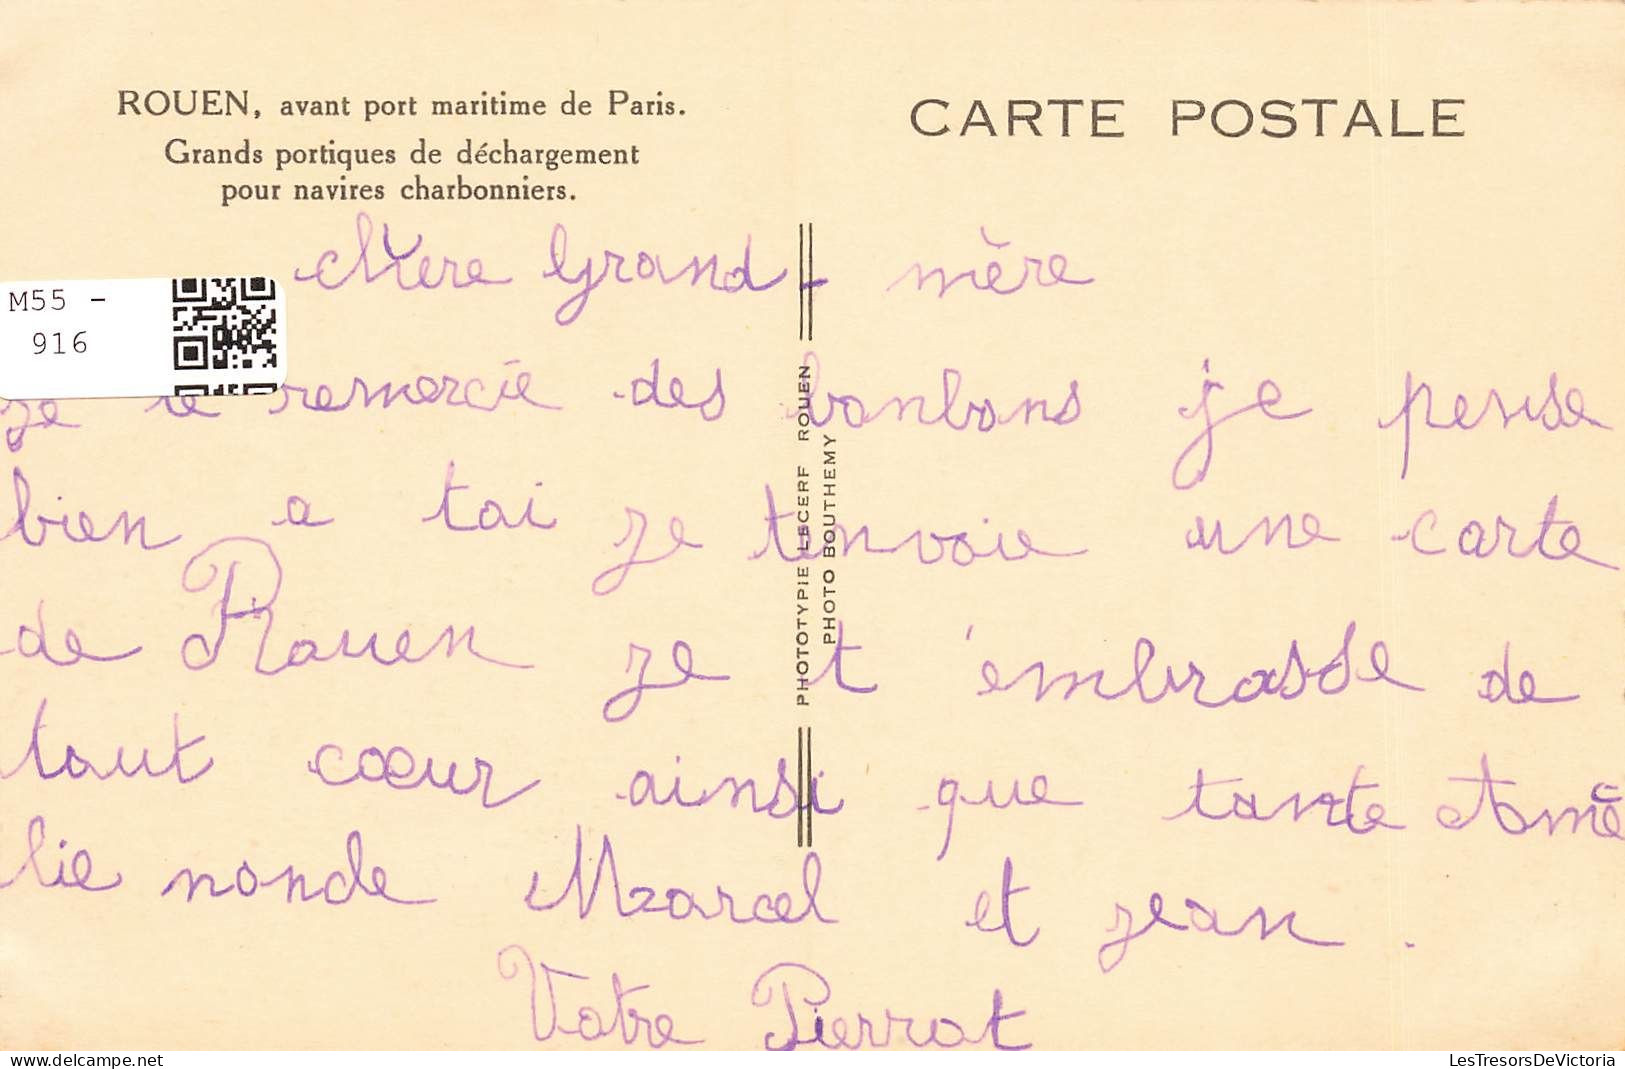 ROUEN, avant port maritime de Paris.
Grands portiques de déchargement
pour navires charbonniers.
CARTE POSTALE
M55 -
916
Mere Grand - mère
je te remercie des bonbons je pense
bien a toi je tenvoie une carte
de Rouen je t'embrasse de
tout cœur ainsi que tante Amé
lie nonde Marcel et jean.
Votre Pierrot
PHOTOTYPIE LECERF ROUEN
PHOTO BOUTHEMY
LesTresorsDeVictoria
https://www.delcampe.net